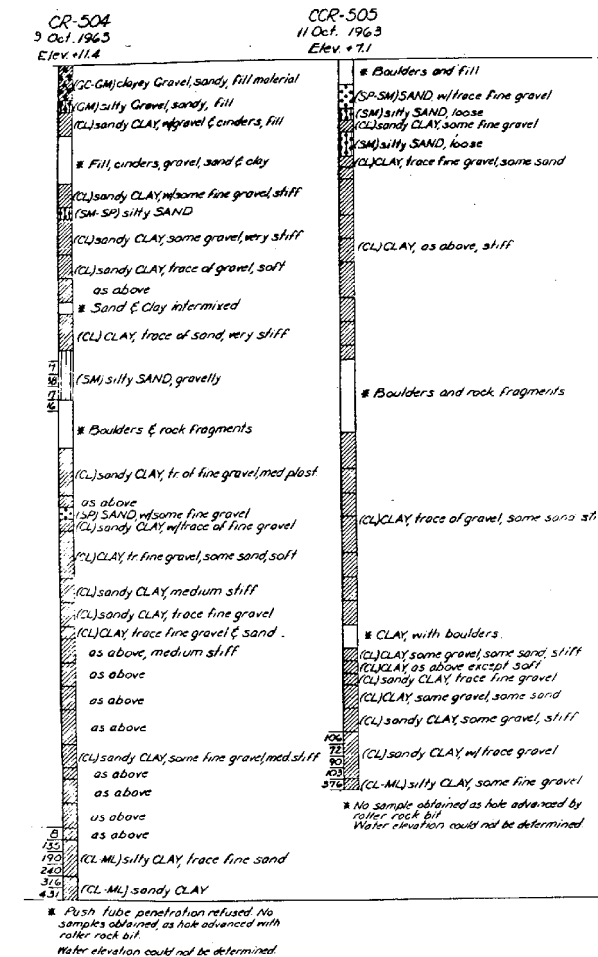 CR-504
9 Oct. 1963
Elev. +11.4
(GC-GM) clayey Gravel, sandy, fill material
(GM) silty Gravel, sandy, fill
(CL) sandy CLAY, w/gravel & cinders, fill
* Fill, cinders, gravel, sand & clay
(CL) sandy CLAY, w/some fine gravel, stiff
(SM-SP) silty SAND
(CL) sandy CLAY, some gravel, very stiff
(CL) sandy CLAY, trace of gravel, soft
as above
* Sand & Clay intermixed
(CL) CLAY, trace of sand, very stiff
17
16
(SM) silty SAND, gravelly
* Boulders & rock fragments
(CL) sandy CLAY, tr. of fine gravel, med plast.
as above
(SP) SAND, w/some fine gravel
(CL) sandy CLAY w/trace of fine gravel
(CL) CLAY, tr. fine gravel, some sand, soft
(CL) sandy CLAY, medium stiff
(CL) sandy CLAY, trace fine gravel
(CL) CLAY, trace fine gravel & sand.
as above, medium stiff
as above
as above
as above
(CL) sandy CLAY, some fine gravel, med. stiff
as above
as above
as above
8
as above
135
190
240
(CL-ML) silty CLAY, trace fine sand
316
431
(CL-ML) sandy CLAY
* Push tube penetration refused. No
samples obtained, as hole advanced with
roller rock bit.
Water elevation could not be determined.
CCR-505
11 Oct. 1963
Elev. +7.1
* Boulders and fill
(SP-SM) SAND, w/trace fine gravel
(SM) silty SAND, loose
(CL) sandy CLAY, some fine gravel
(SM) silty SAND, loose
(CL) CLAY, trace fine gravel, some sand
(CL) CLAY, as above, stiff
* Boulders and rock fragments
(CL) CLAY, trace of gravel, some sand sti
* CLAY, with boulders.
(CL) CLAY, some gravel, some sand, stiff
(CL) CLAY, as above except soft
(CL) sandy CLAY, trace fine gravel
(CL) CLAY, some gravel, some sand
(CL) sandy CLAY, some gravel, stiff
106
72
90
103
(CL) sandy CLAY, w/trace gravel
376
(CL-ML) silty CLAY, some fine gravel
* No sample obtained as hole advanced by
roller rock bit
Water elevation could not be determined